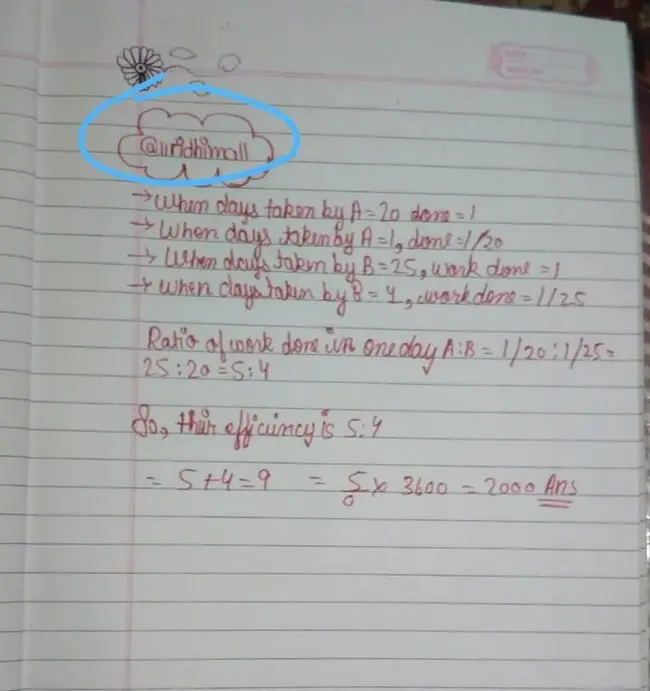 @uridhimall
→ When days taken by A = 20 done = 1
→ When days taken by A = 1, done = 1/20
→ When days taken by B = 25, work done = 1
→ When days taken by B = 1, work done = 1/25
Ratio of work done in one day A:B = 1/20 : 1/25 =
25 : 20 = 5 : 4
So, their efficiency is 5:4
= 5+4=9 = 5/9 × 3600 = 2000 Ans